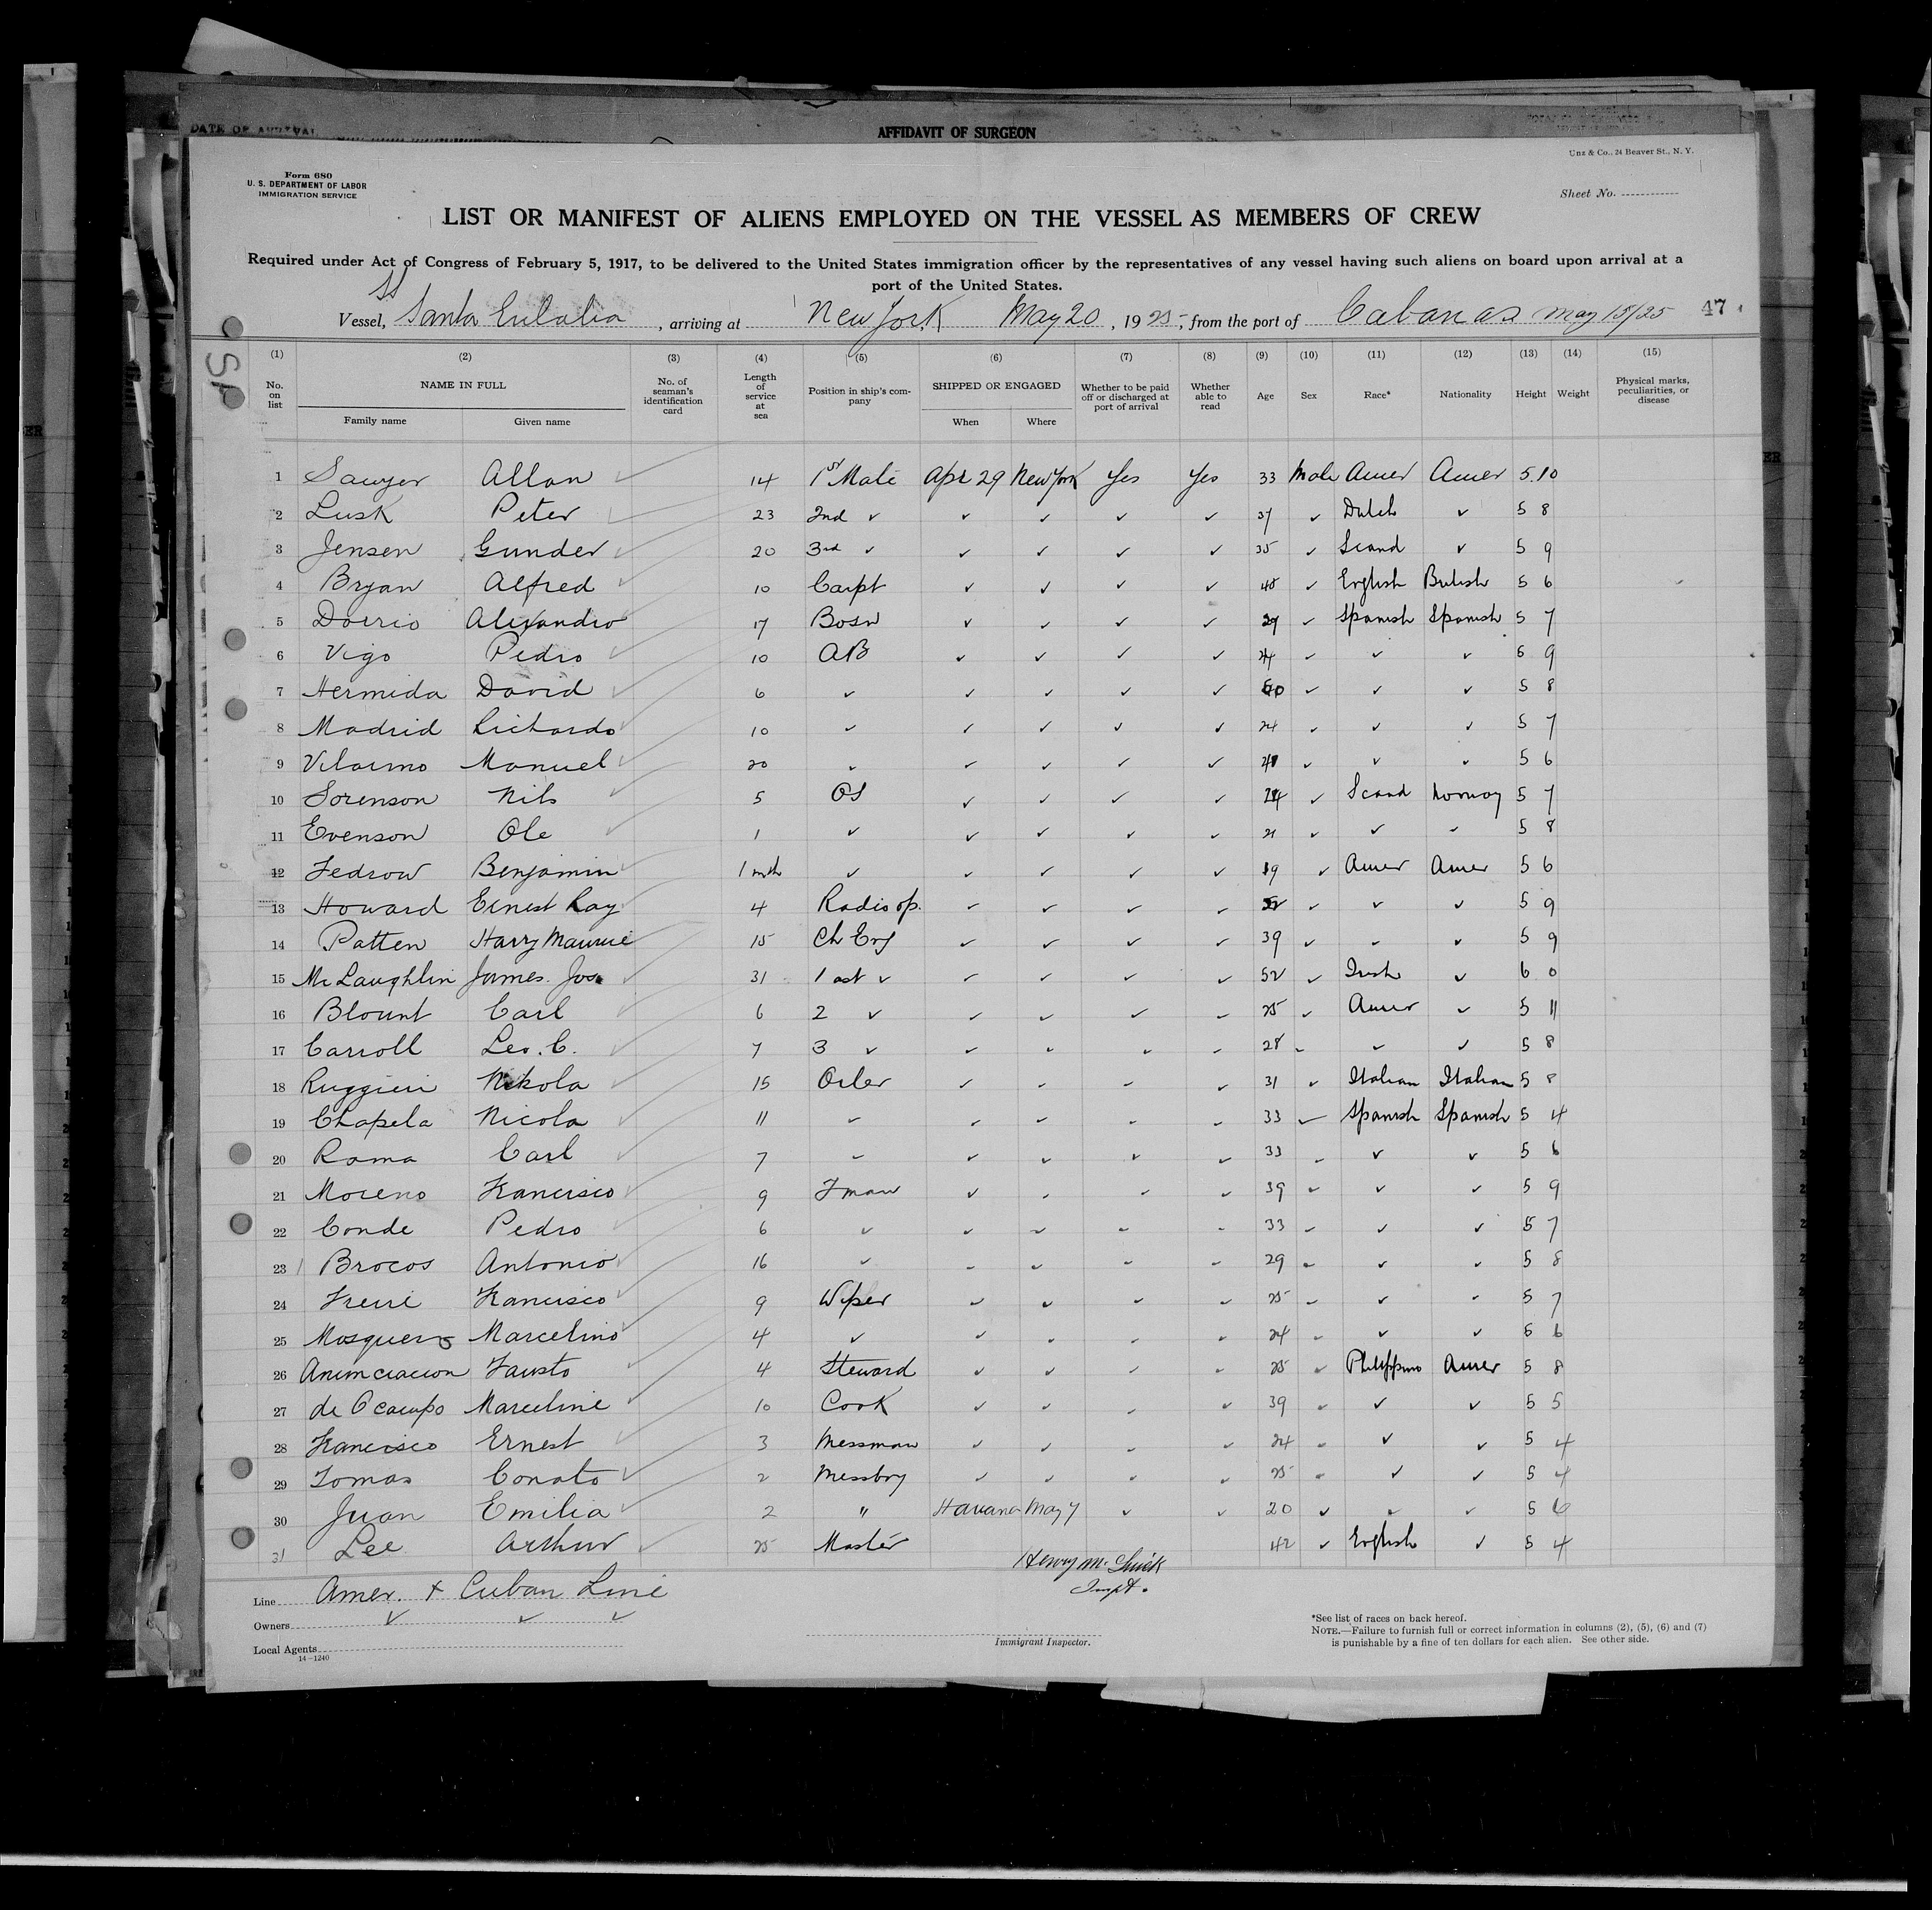 DATE OF ARRIVAL
AFFIDAVIT OF SURGEON
Unz & Co., 24 Beaver St., N. Y.
Form 680
U. S. DEPARTMENT OF LABOR
IMMIGRATION SERVICE
Sheet No.
LIST OR MANIFEST OF ALIENS EMPLOYED ON THE VESSEL AS MEMBERS OF CREW
Required under Act of Congress of February 5, 1917, to be delivered to the United States immigration officer by the representatives of any vessel having such aliens on board upon arrival at a
port of the United States.
Vessel, SS Santa Eulalia, arriving at New York May 20, 1925, from the port of Cabanas May 15/25 47
(1) (2) (3) (4) (5) (6) (7) (8) (9) (10) (11) (12) (13) (14) (15)
No. on list NAME IN FULL Family name Given name No. of seaman's identification card Length of service at sea Position in ship's company SHIPPED OR ENGAGED When Where Whether to be paid off or discharged at port of arrival Whether able to read Age Sex Race* Nationality Height Weight Physical marks, peculiarities, or disease
1 Sawyer Allan ✓ 14 1st Mate Apr 29 New York Yes Yes 33 Male Amer Amer 5.10
2 Lusk Peter ✓ 23 2nd ✓ ✓ ✓ ✓ ✓ 37 ✓ Dutch ✓ 5 8
3 Jensen Gunder ✓ 20 3rd ✓ ✓ ✓ ✓ ✓ 35 ✓ Scand ✓ 5 9
4 Bryan Alfred ✓ 10 Carpt ✓ ✓ ✓ ✓ 45 ✓ English British 5 6
5 Dorrio Alexandro 17 Bosn ✓ ✓ ✓ ✓ 29 ✓ Spanish Spanish 5 7
6 Vigo Pedro ✓ 10 AB ✓ ✓ ✓ ✓ ✓ ✓ ✓ 5 9
7 Hermida David ✓ 6 ✓ ✓ ✓ ✓ ✓ ✓ ✓ ✓ 5 8
8 Madrid Richardo ✓ 10 ✓ ✓ ✓ ✓ ✓ 24 ✓ ✓ ✓ 5 7
9 Vilarino Manuel ✓ 20 ✓ ✓ ✓ ✓ ✓ ✓ ✓ ✓ 5 6
10 Sorenson Nils ✓ 5 OS ✓ ✓ ✓ ✓ 24 ✓ Scand Norway 5 7
11 Evenson Ole ✓ 1 ✓ ✓ ✓ ✓ ✓ 21 ✓ ✓ ✓ 5 8
12 Fedrow Benjamin ✓ 1 mth ✓ ✓ ✓ ✓ ✓ 19 ✓ Amer Amer 5 6
13 Howard Ernest Ray 4 Radio op. ✓ ✓ ✓ ✓ ✓ ✓ ✓ 5 9
14 Patten Harry Maurice 15 Ch Eng ✓ ✓ ✓ ✓ 39 ✓ ✓ ✓ 5 9
15 McLaughlin James. Jos. ✓ 31 1 ast ✓ ✓ ✓ ✓ ✓ 52 ✓ Irish ✓ 6 0
16 Blount Carl ✓ 6 2 ✓ ✓ ✓ ✓ ✓ 25 ✓ Amer ✓ 5 11
17 Carroll Leo. C. ✓ 7 3 ✓ ✓ ✓ ✓ ✓ 28 ✓ ✓ ✓ 5 8
18 Ruggieri Nikola ✓ 15 Oiler ✓ ✓ ✓ ✓ 31 ✓ Italian Italian 5 8
19 Chapela Nicola ✓ 11 ✓ ✓ ✓ ✓ ✓ 33 ✓ Spanish Spanish 5 4
20 Roma Carl ✓ 7 ✓ ✓ ✓ ✓ ✓ 33 ✓ ✓ ✓ 5 6
21 Moreno Francisco ✓ 9 Fman ✓ ✓ ✓ ✓ 39 ✓ ✓ ✓ 5 9
22 Conde Pedro ✓ 6 ✓ ✓ ✓ ✓ ✓ 33 ✓ ✓ ✓ 5 7
23 Brocos Antonio ✓ 16 ✓ ✓ ✓ ✓ ✓ 29 ✓ ✓ ✓ 5 8
24 Freire Francisco ✓ 9 Wiper ✓ ✓ ✓ ✓ 25 ✓ ✓ ✓ 5 7
25 Mosquera Marcelino ✓ 4 ✓ ✓ ✓ ✓ ✓ 24 ✓ ✓ ✓ 5 6
26 Anunciacion Fausto ✓ 4 Steward ✓ ✓ ✓ ✓ 25 ✓ Philippino Amer 5 8
27 de Ocampo Marceline ✓ 10 Cook ✓ ✓ ✓ ✓ 39 ✓ ✓ ✓ 5 5
28 Francisco Ernest ✓ 3 Messman ✓ ✓ ✓ ✓ 24 ✓ ✓ ✓ 5 4
29 Tomas Conato ✓ 2 Messboy ✓ ✓ ✓ ✓ 25 ✓ ✓ ✓ 5 4
30 Juan Emilia ✓ 2 " Havana May 7 ✓ ✓ 20 ✓ ✓ ✓ 5 6
31 Lee Arthur ✓ 25 Master 42 ✓ English ✓ 5 4
Line Amer. & Cuban Line
Owners ✓ ✓ ✓
Local Agents
14—1240
Henry M.
Inspt.
Immigrant Inspector.
*See list of races on back hereof.
NOTE.—Failure to furnish full or correct information in columns (2), (5), (6) and (7)
is punishable by a fine of ten dollars for each alien. See other side.